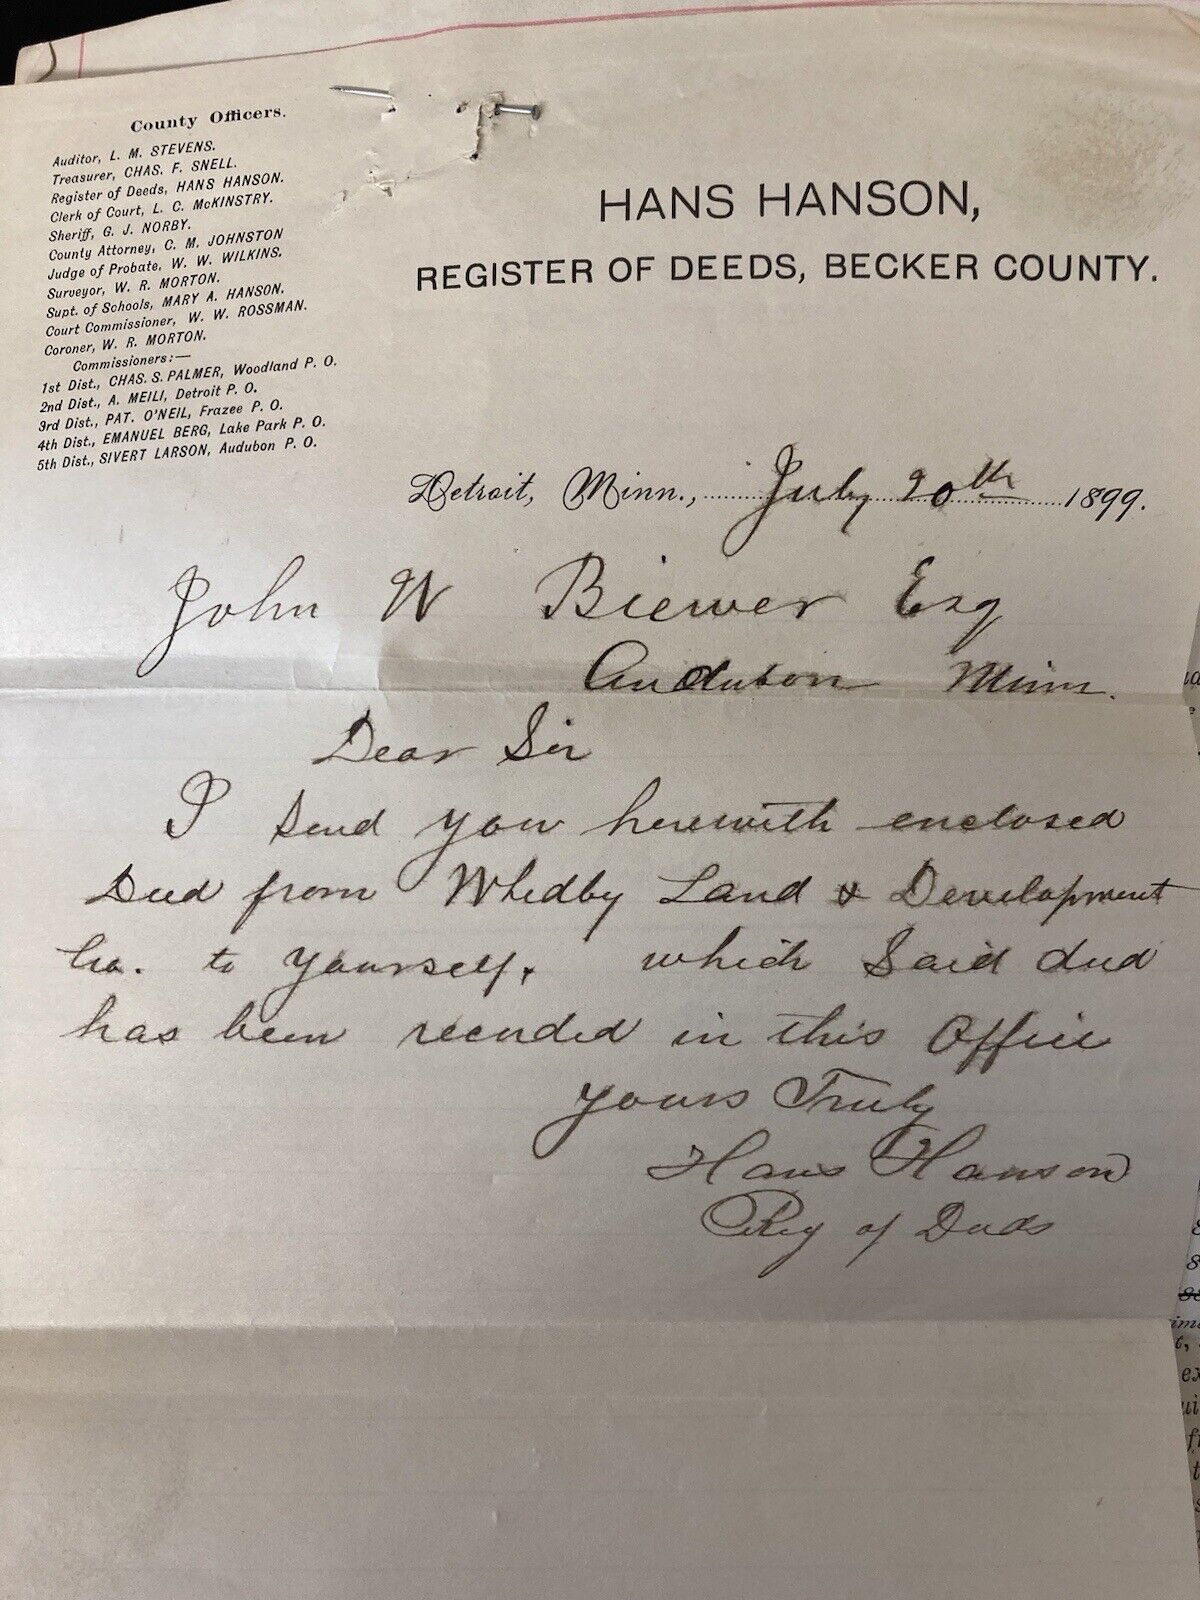 County Officers.
Auditor, L. M. STEVENS.
Treasurer, CHAS. F. SNELL.
Register of Deeds, HANS HANSON.
Clerk of Court, L. C. McKINSTRY.
Sheriff, G. J. NORBY.
County Attorney, C. M. JOHNSTON
Judge of Probate, W. W. WILKINS.
Surveyor, W. R. MORTON.
Supt. of Schools, MARY A. HANSON.
Court Commissioner, W. W. ROSSMAN.
Coroner, W. R. MORTON.
Commissioners:—
1st Dist., CHAS. S. PALMER, Woodland P. O.
2nd Dist., A. MEILI, Detroit P. O.
3rd Dist., PAT. O'NEIL, Frazee P. O.
4th Dist., EMANUEL BERG, Lake Park P. O.
5th Dist., SIVERT LARSON, Audubon P. O.
HANS HANSON,
REGISTER OF DEEDS, BECKER COUNTY.
Detroit, Minn., July 20th 1899.
John W Biewer Esq
Audubon Minn.
Dear Sir
I send you herewith enclosed
Deed from Whedby Land & Development
Co. to yourself, which Said deed
has been recorded in this Office
Yours Truly
Hans Hanson
Reg of Deeds